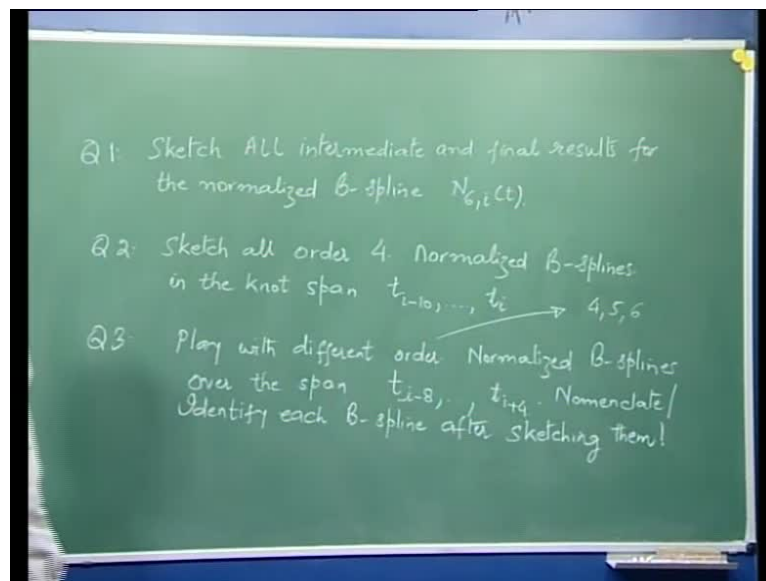 Q1: Sketch ALL intermediate and final results for
the normalized B-spline N6,i(t).
Q2: Sketch all order 4 Normalized B-splines
in the knot span ti-10,...., ti
4, 5, 6
Q3 Play with different order Normalized B-splines
over the span ti-8,.., ti+4. Nomenclate/
Identify each B-spline after sketching them!